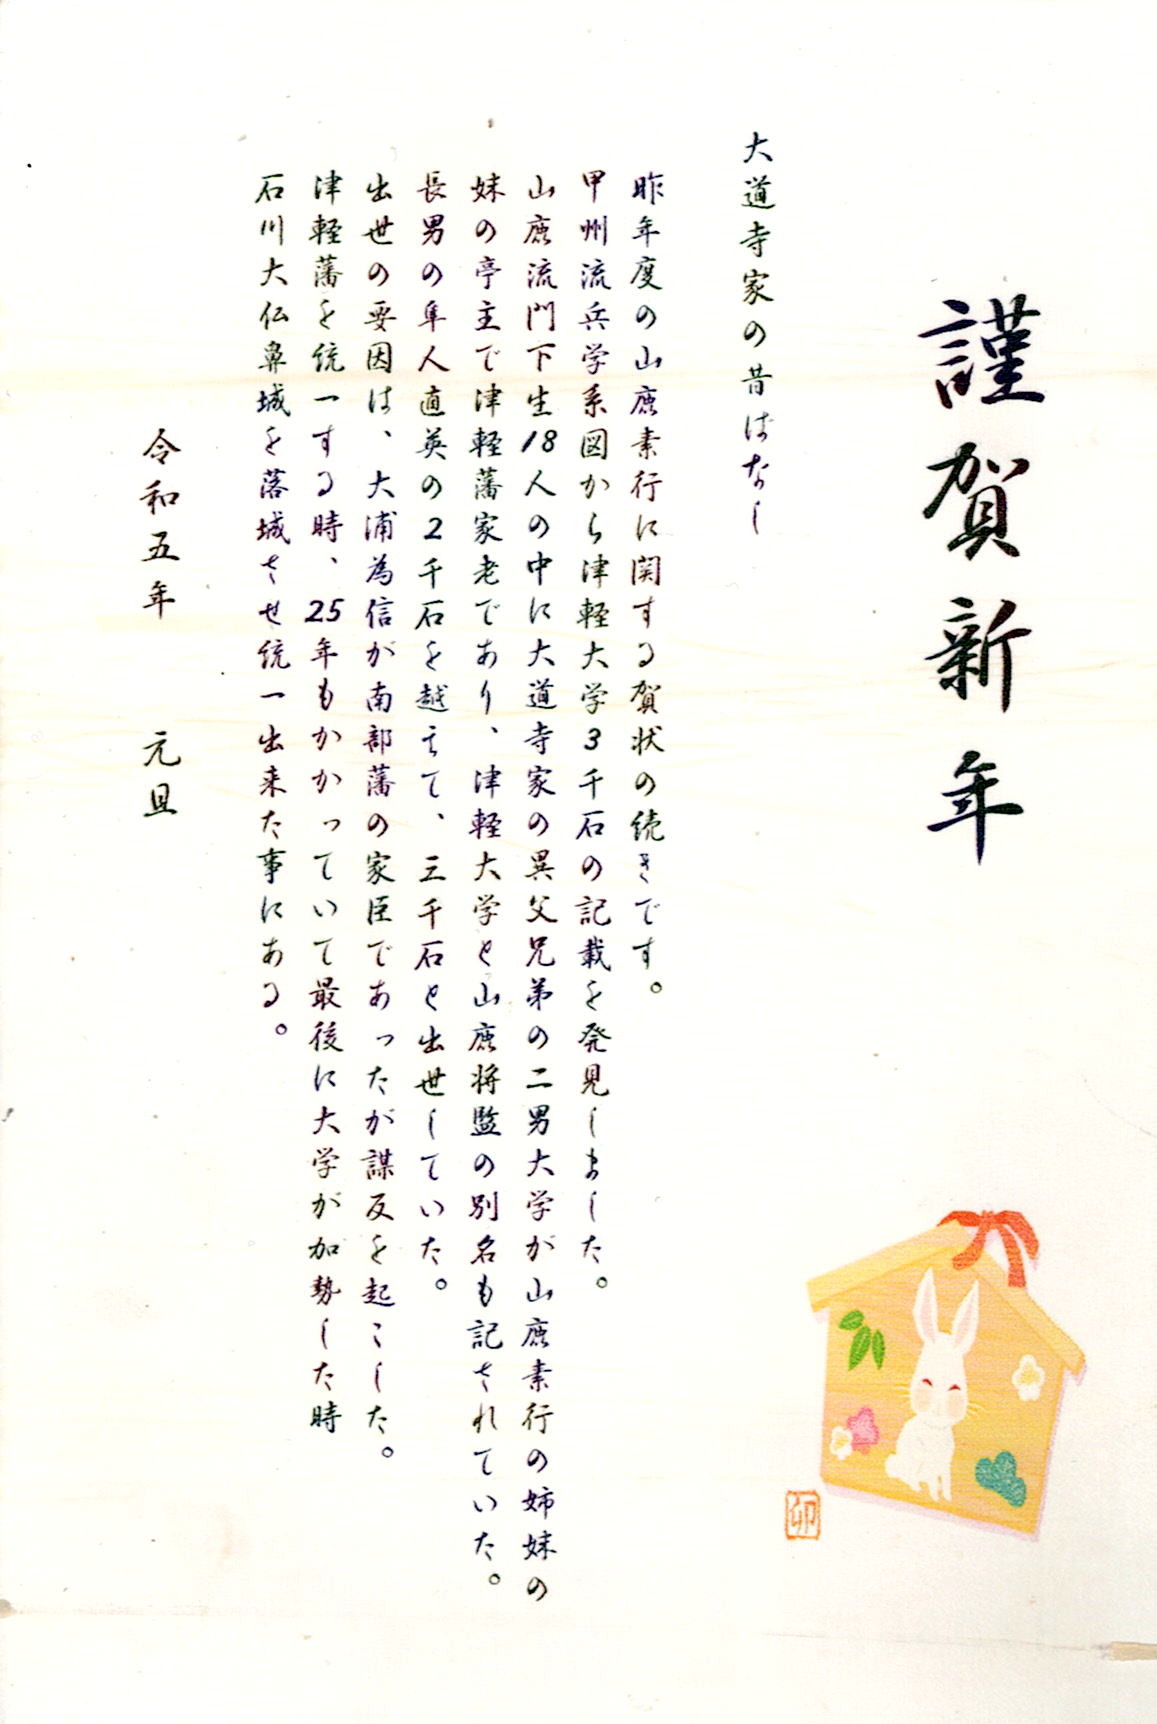 謹賀新年
大道寺家の昔はなし
昨年度の山鹿素行に関する賀状の続きです。
甲州流兵学系図から津軽大学3千石の記載を発見しました。
山鹿流門下生18人の中に大道寺家の異父兄弟の二男大学が山鹿素行の姉妹の
妹の亭主で津軽藩家老であり、津軽大学と山鹿将監の別名も記されていた。
長男の隼人直英の2千石を越えて、三千石と出世していた。
出世の要因は、大浦為信が南部藩の家臣であったが謀反を起こした。
津軽藩を統一する時、25年もかかっていて最後に大学が加勢した時
石川大仏鼻城を落城させ統一出来た事にある。
令和五年 元旦
卯